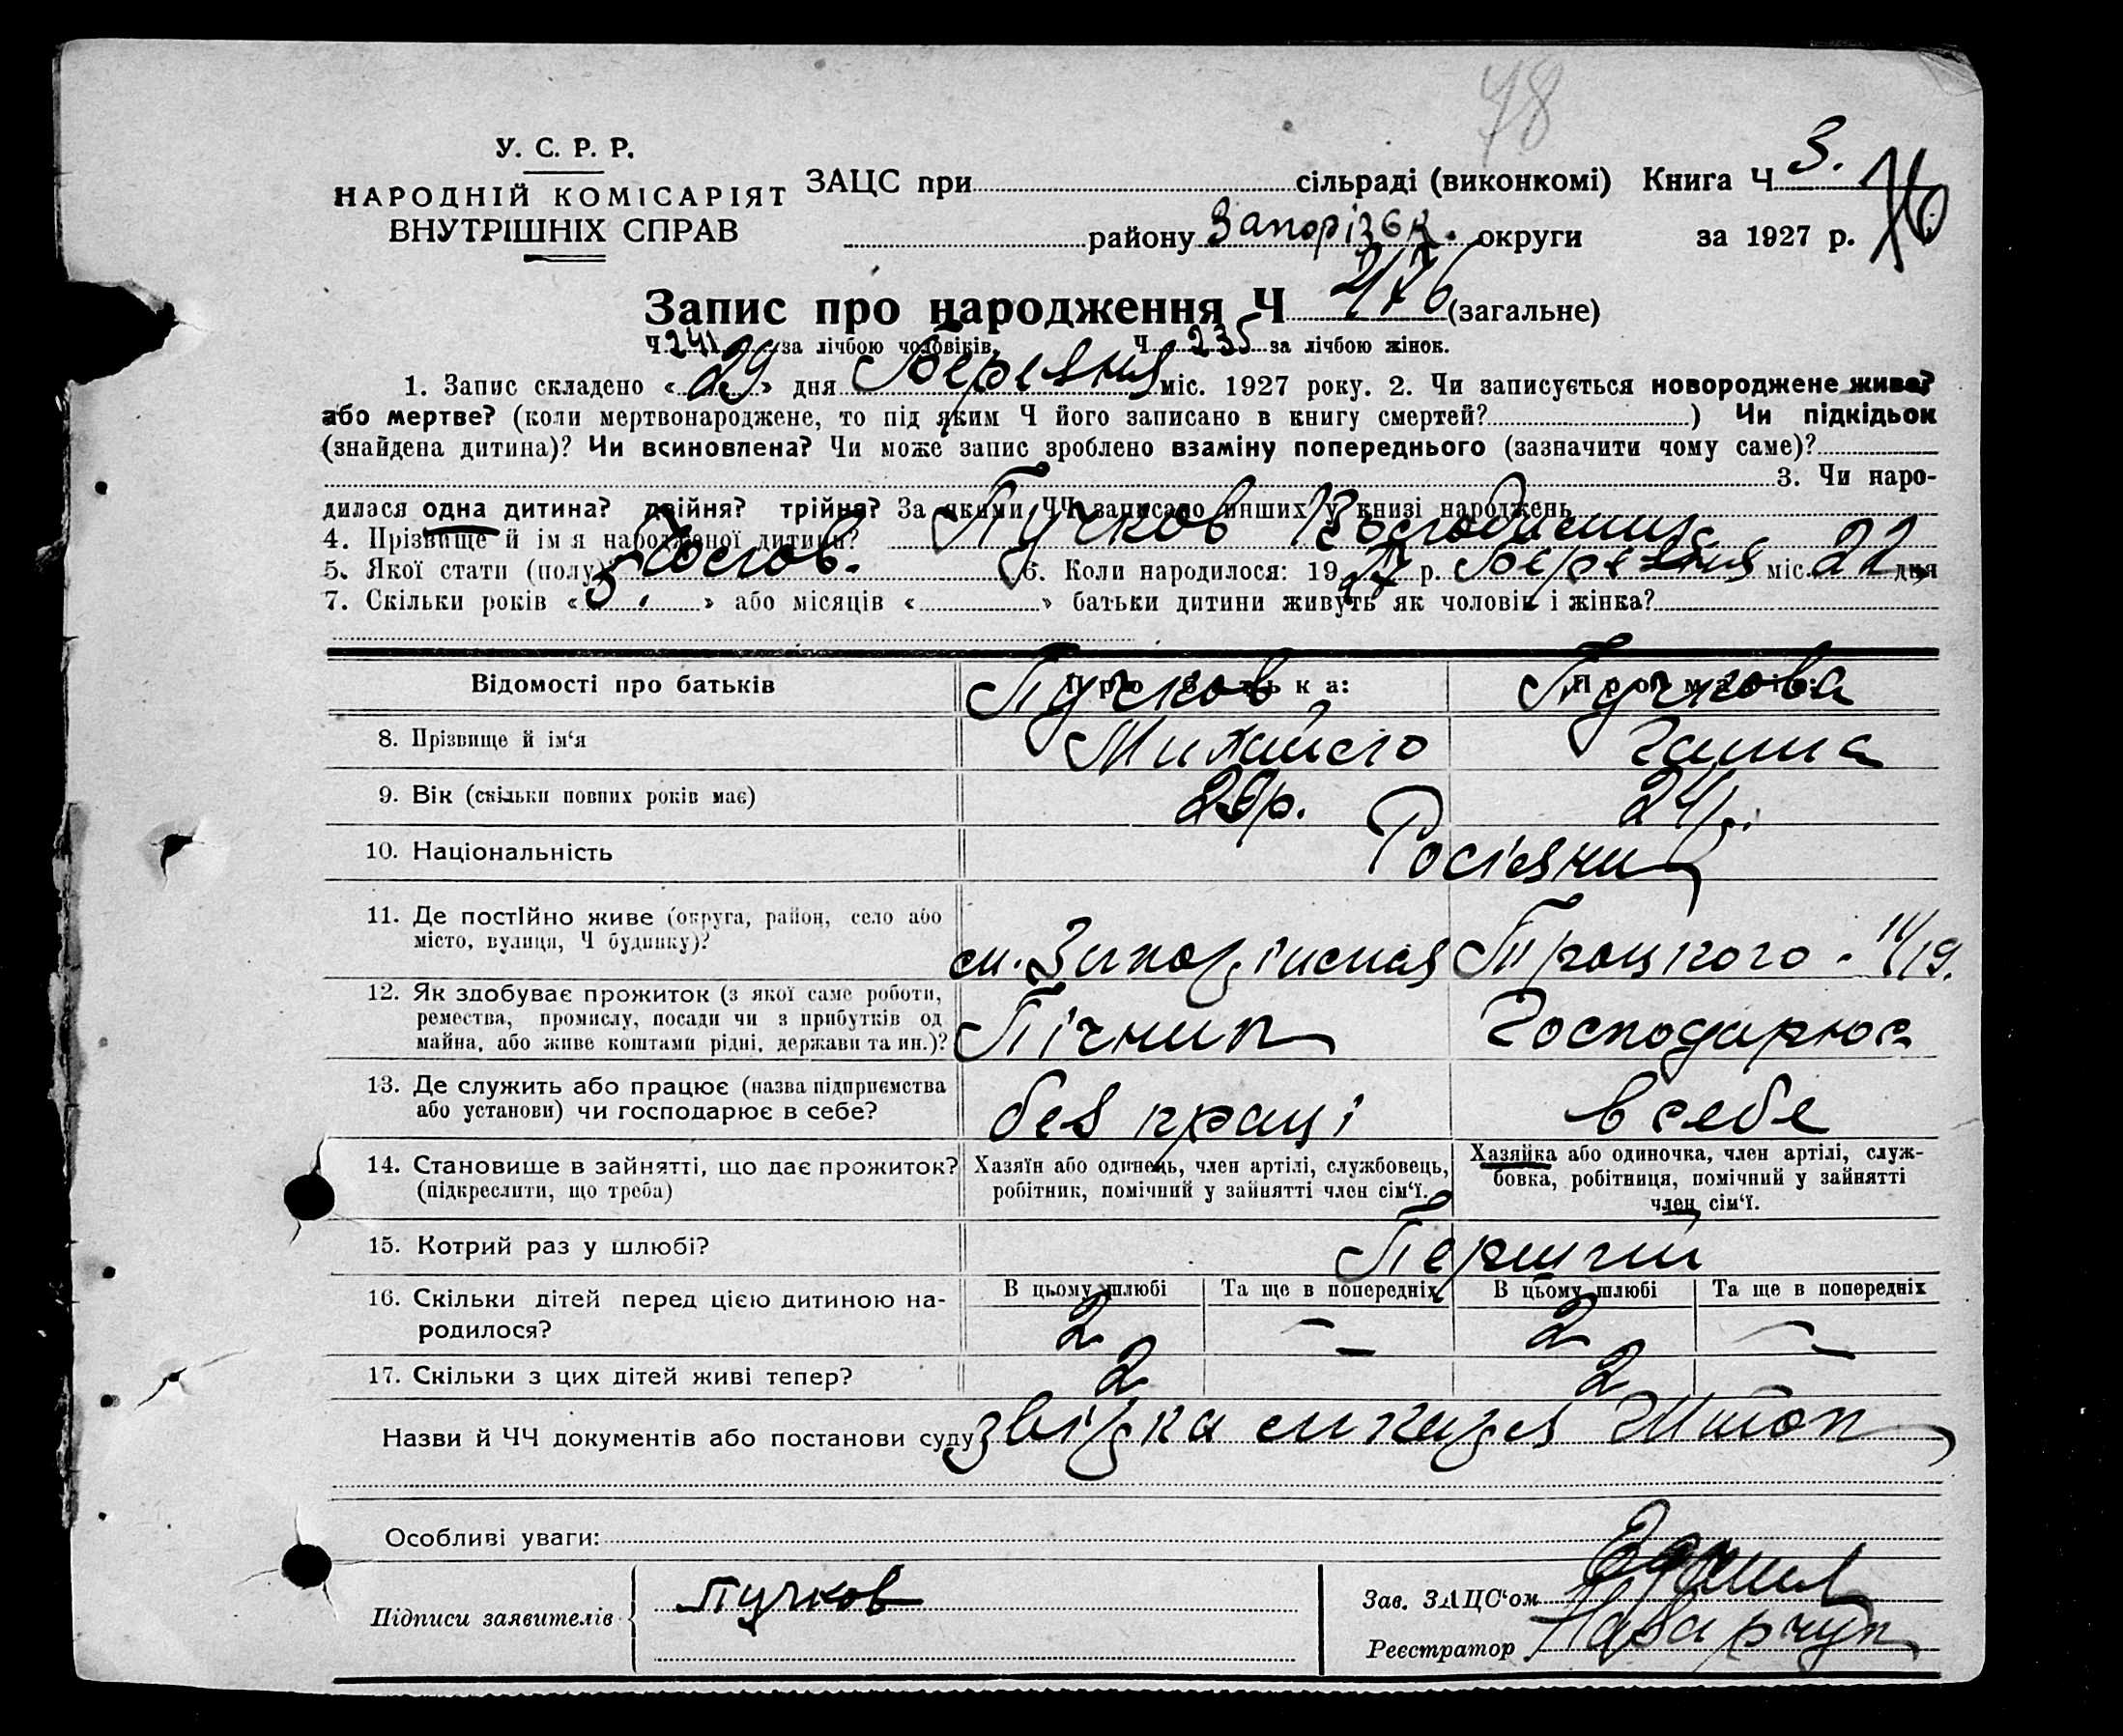 48
У. С. Р. Р.
НАРОДНІЙ КОМІСАРІЯТ
ВНУТРІШНІХ СПРАВ
ЗАЦС при сільраді (виконкомі) Книга Ч 3.
району Запорізьк. округи за 1927 р.
Запис про народження Ч 476 (загальне)
Ч 241 за лічбою чоловіків. Ч 235 за лічбою жінок.
1. Запис складено « 29 » дня Березня міс. 1927 року. 2. Чи записується новороджене живе?
або мертве? (коли мертвонароджене, то під яким Ч його записано в книгу смертей? ) Чи підкідьок
(знайдена дитина)? Чи всиновлена? Чи може запис зроблено взаміну попереднього (зазначити чому саме)?
3. Чи наро-
дилася одна дитина? двійня? трійня? За якими ЧЧ записано инших у книзі народжень
4. Прізвище й ім я народженої дитини? Пучков
5. Якої стати (полу)? чолов. 6. Коли народилося: 1927 р. Березня міс. 22 дня
7. Скільки років « 5. » або місяців « » батьки дитини живуть як чоловік і жінка?
Відомості про батьків Про батька: Про матір:
Пучков Пучкова
8. Прізвище й ім‘я Михайло Ганна
9. Вік (скільки повних років має) р. 24 р.
10. Національність Росіяни
11. Де постійно живе (округа, район, село або
місто, вулиця, Ч будинку)?
м. Запоріжжя Троцкого - 14/19.
12. Як здобуває прожиток (з якої саме роботи,
ремества, промислу, посади чи з прибутків од
майна, або живе коштами рідні, держави та ин.)?
Пічник Господарює
13. Де служить або працює (назва підприємства
або установи) чи господарює в себе?
без праці в себе
14. Становище в зайнятті, що дає прожиток?
(підкреслити, що треба)
Хазяїн або одинець, член артілі, службовець,
робітник, помічний у зайнятті член сім‘ї.
Хазяйка або одиночка, член артілі, служ-
бовка, робітниця, помічний у зайнятті
член сім‘ї.
15. Котрий раз у шлюбі? Перший
16. Скільки дітей перед цією дитиною на-
родилося?
В цьому шлюбі Та ще в попередніх В цьому шлюбі Та ще в попередніх
2 — 2 —
17. Скільки з цих дітей живі тепер? 2 2
Назви й ЧЧ документів або постанови суду
Особливі уваги:
Підписи заявителів Пучков
Зав. ЗАЦС‘ом
Реєстратор